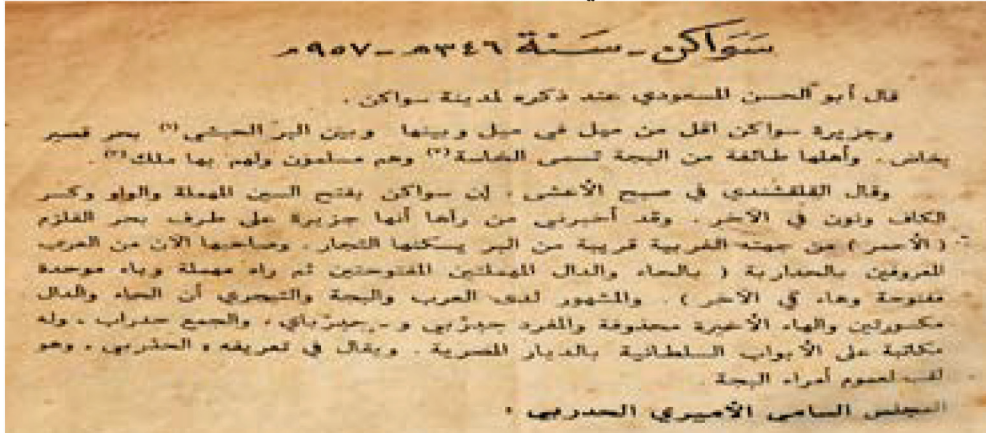 سَوَاكن - سَنَة ٣٤٦هـ - ٩٥٧م
قال أبو الحسن المسعودي عند ذكره لمدينة سواكن .
وجزيرة سواكن اقل من ميل في ميل وبينها وبين البر الحبشي (١) بحر قصير
يخاض . وأهلها طائفة من البجة تسمى الخاسة (٢) وهم مسلمون ولهم بها ملك (٣) .
وقال القلقشندي في صبح الأعشى ، إن سواكن بفتح السين المهملة والواو وكسر
الكاف ونون في الآخر . وقد أخبرني من رآها أنها جزيرة على طرف بحر القلزم
( الأحمر ) من جهته الغربية قريبة من البر يسكنها التجار . وصاحبها الآن من العرب
المعروفين بالحداربة ( بالحاء والدال المهملتين المفتوحتين ثم راء مهملة وباء موحدة
مفتوحة وهاء في الآخر ) . والمشهور لدى العرب والبجة والتيجري أن الحاء والدال
مكسورتين والهاء الأخيرة محذوفة والمفرد حِدِرْبي و - حِدِرْباي ، والجمع حدراب ، وله
مكاتبة على الأبواب السلطانية بالديار المصرية . ويقال في تعريفه « الحدربي ، وهو
لقب لعموم أمراء البجة .
المجلس السامى الأميري الحدربي .